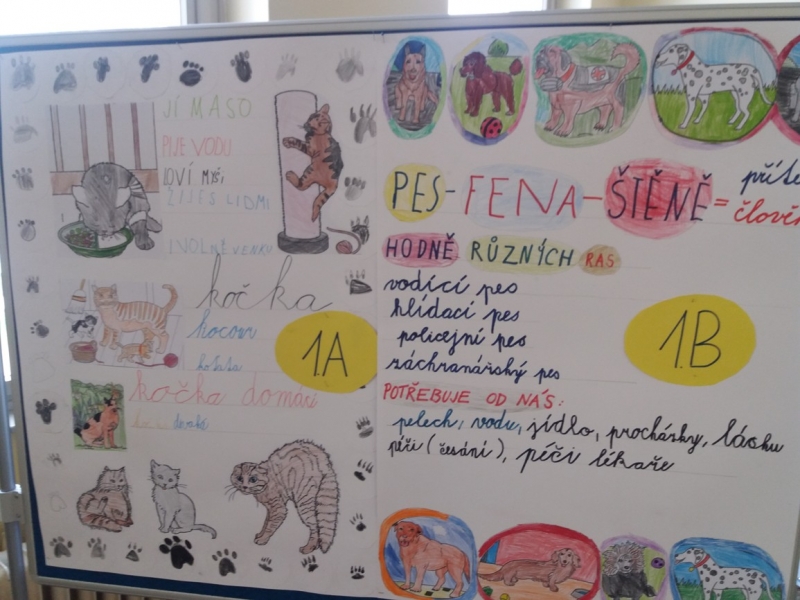 JÍ MASO
PIJE VODU
LOVÍ MYŠI
ŽIJE S LIDMI
I VOLNĚ VENKU
kočka
kocour
koťata
kočka domácí
divoká
1.A
PES - FENA - ŠTĚNĚ =
člově
HODNĚ RŮZNÝCH RAS
vodící pes
hlídací pes
policejní pes
záchranářský pes
1.B
POTŘEBUJE OD NÁS:
pelech, vodu, jídlo, procházky, lásku
péči (česání), péči lékaře